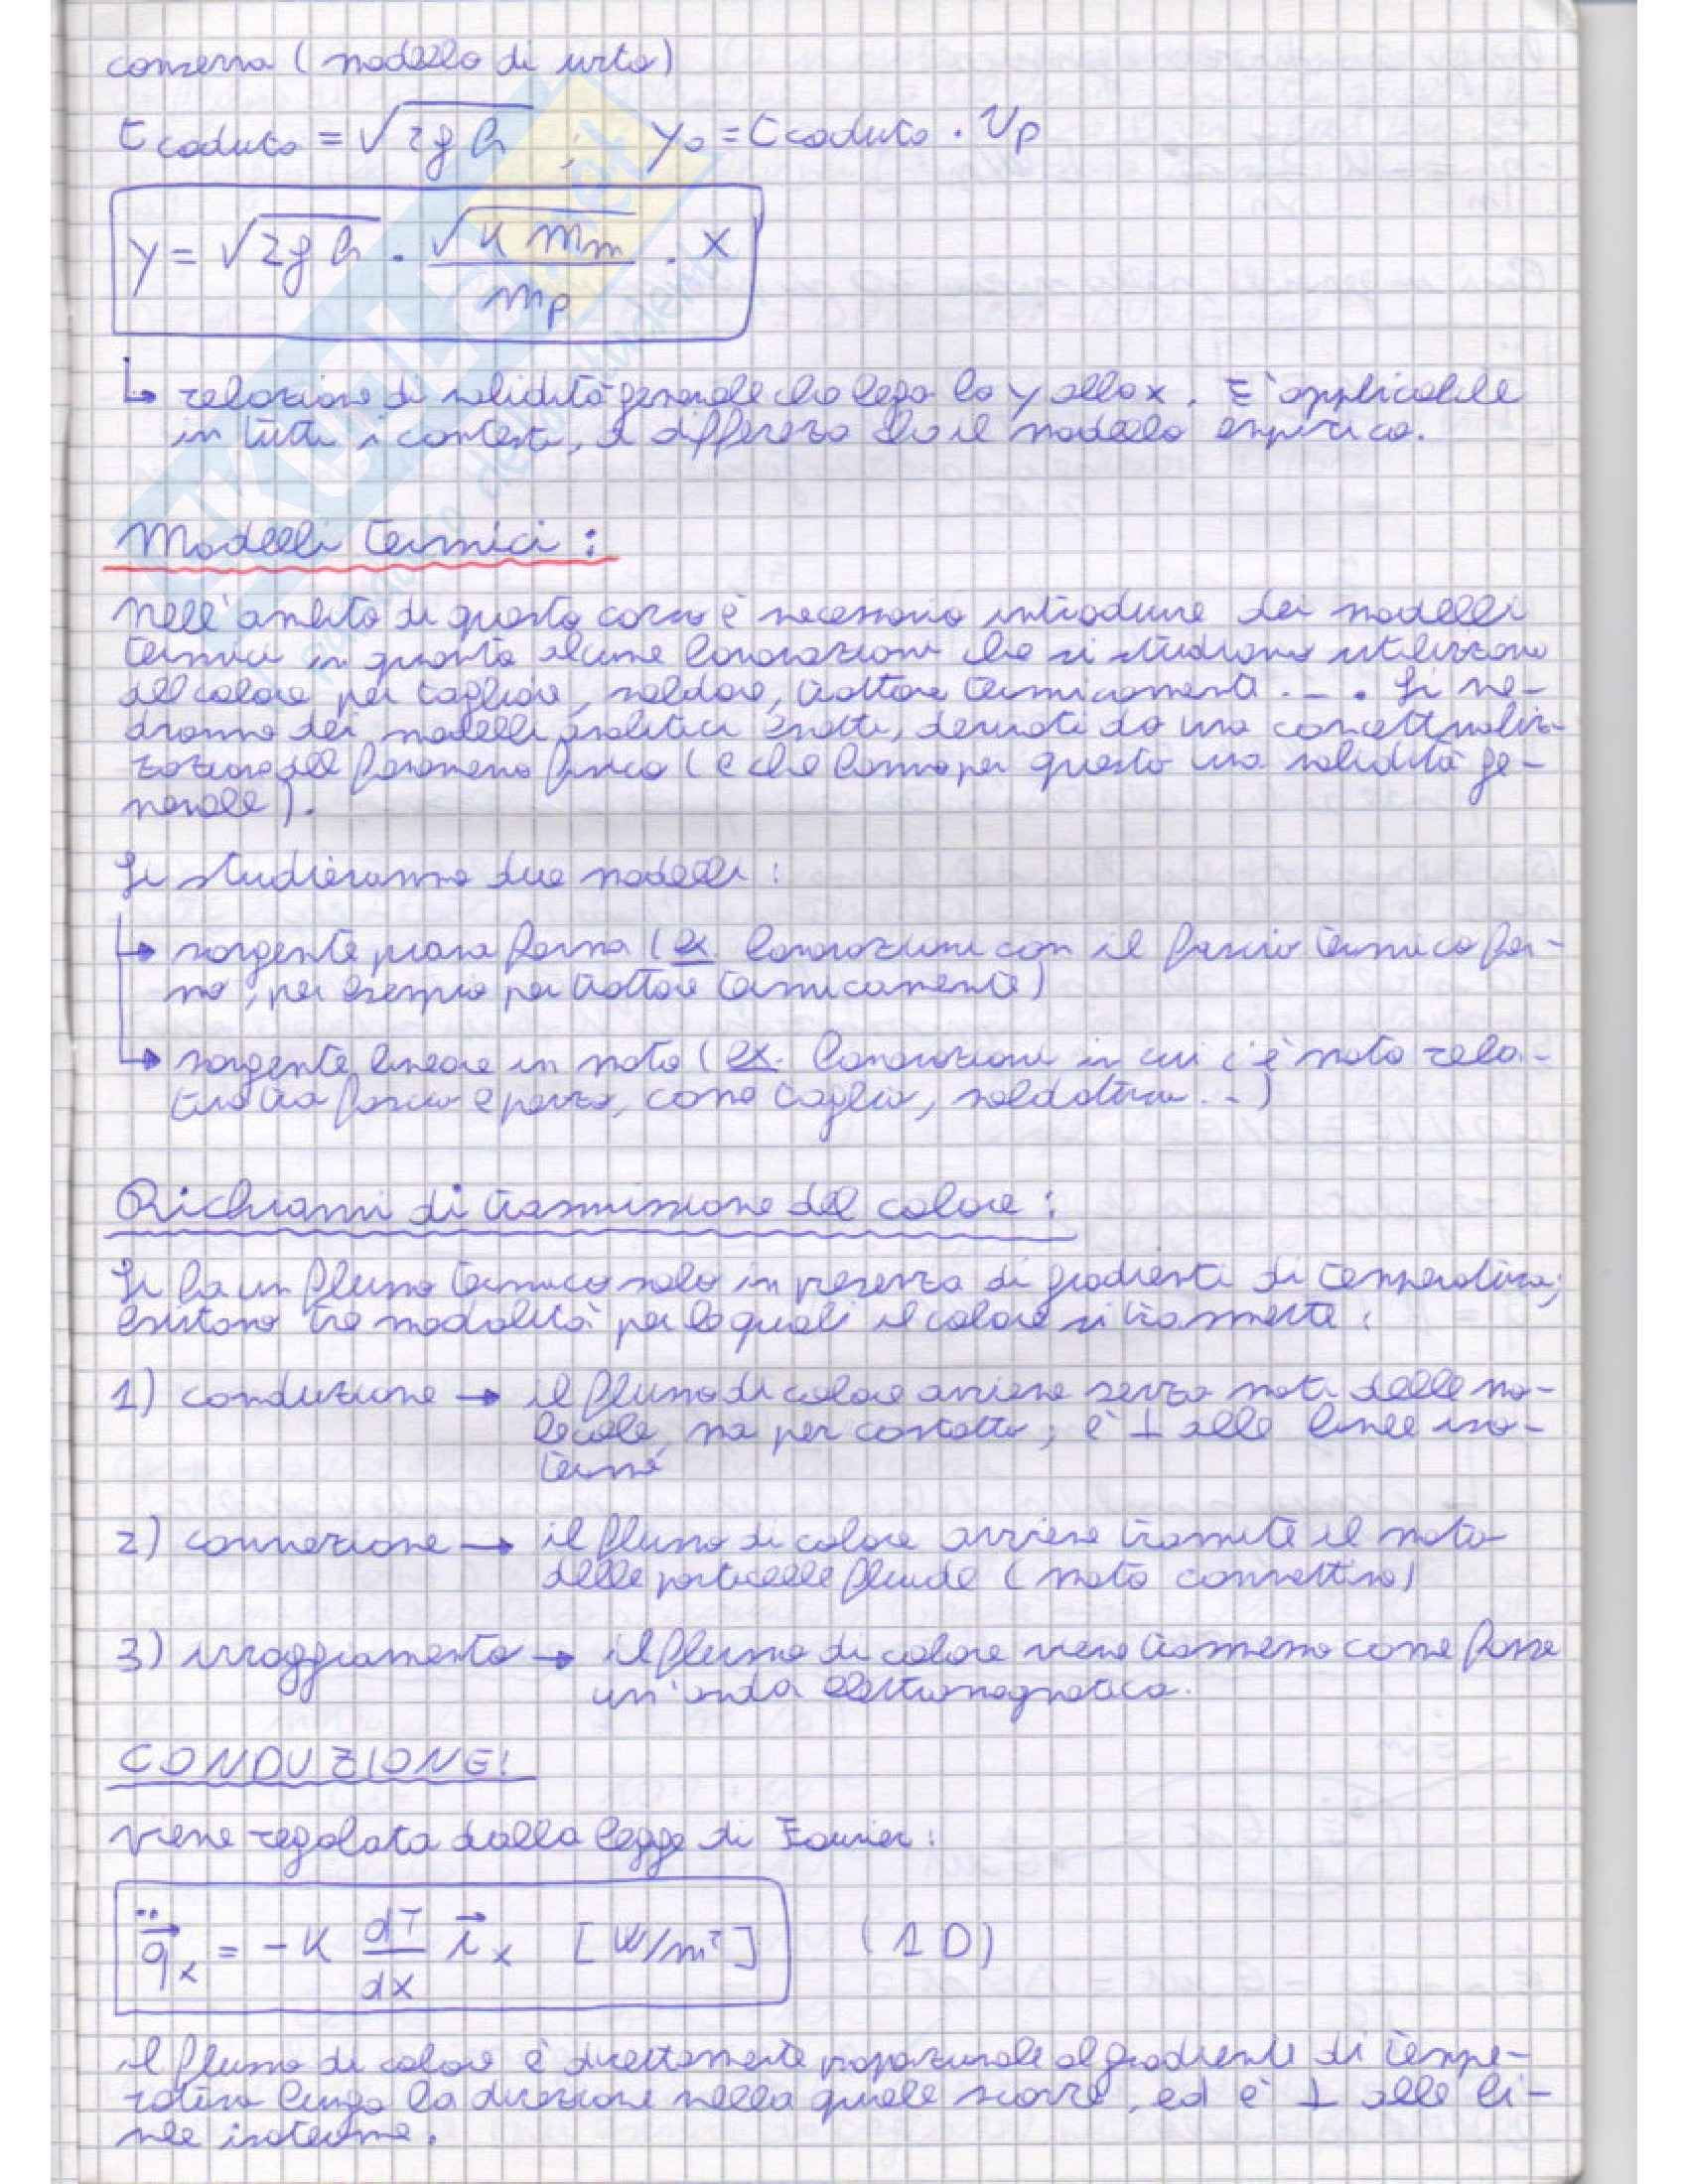 conserva (modello di urto)
t caduta = √2gh ; y₀ = t caduta · Vp
y = √2gh · √K Mm / mp · x
↳ relazione di validità generale che lega la y alla x. E' applicabile
in tutti i contesti, a differenza che il modello empirico.
Modelli termici :
Nell'ambito di questo corso è necessario introdurre dei modelli
termici in quanto alcune lavorazioni che si studiano utilizzano
il calore per tagliare, saldare, trattare termicamente ... Si ve-
dranno dei modelli analitici esatti, derivati da una concettualiz-
zazione del fenomeno fisico (e che hanno per questo una validità ge-
nerale).
Si studieranno due modelli :
↳ sorgente piana ferma (ex lavorazioni con il fascio termico fer-
mo, per esempio per trattare termicamente)
↳ sorgente lineare in moto (ex. lavorazioni in cui c'è moto rela-
tivo tra fascio e pezzo, come taglio, saldatura ...)
Richiami di trasmissione del calore :
Si ha un flusso termico solo in presenza di gradienti di temperatura;
esistono tre modalità per le quali il calore si trasmette :
1) conduzione → il flusso di calore avviene senza moti delle mo-
lecole, ma per contatto ; è ⊥ alle linee iso-
terme
2) convezione → il flusso di calore avviene tramite il moto
delle particelle fluide (moto convettivo)
3) irraggiamento → il flusso di calore viene trasmesso come fosse
un'onda elettromagnetica.
CONDUZIONE:
Viene regolata dalla legge di Fourier :
q̈⃗x = - K dT/dx i⃗x [W/m²] (1D)
il flusso di calore è direttamente proporzionale al gradiente di tempe-
ratura lungo la direzione nella quale scorre, ed è ⊥ alle li-
nee isoterme.